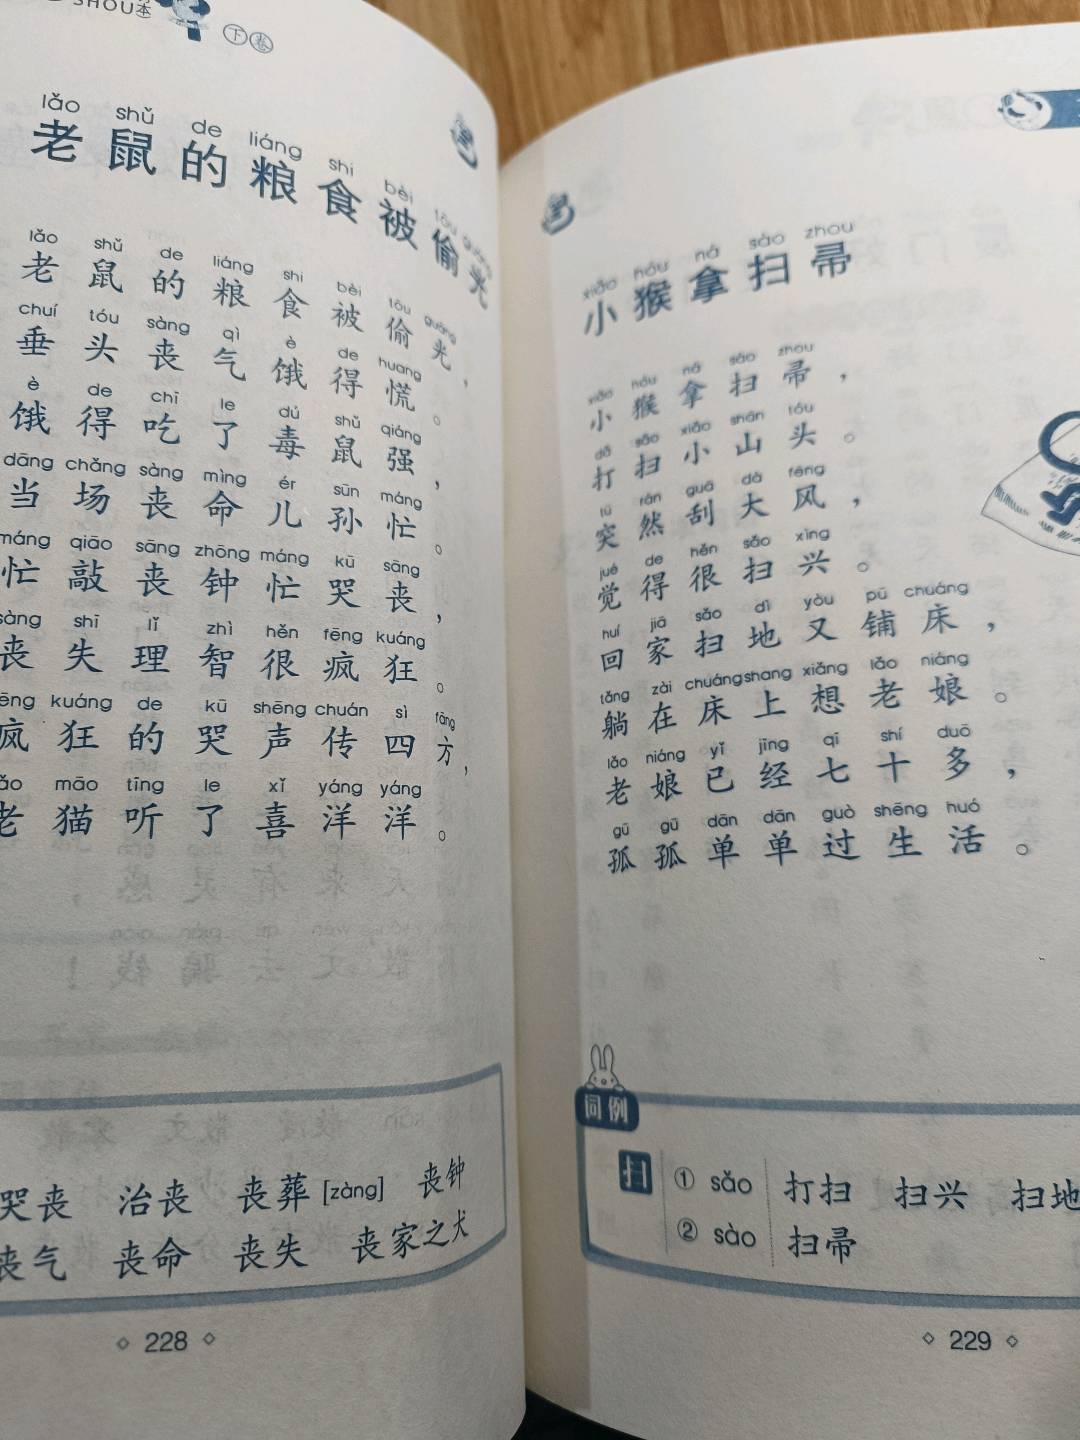 SHOU本
下卷
lǎo shǔ de liáng shi bèi tōu guāng
老鼠的粮食被偷光
lǎo shǔ de liáng shi bèi tōu guāng
老鼠的粮食被偷光，
chuí tóu sàng qì è de huang
垂头丧气饿得慌。
è de chī le dú shǔ qiáng
饿得吃了毒鼠强，
dāng chǎng sàng mìng ér sūn máng
当场丧命儿孙忙。
máng qiāo sāng zhōng máng kū sāng
忙敲丧钟忙哭丧，
sàng shī lǐ zhì hěn fēng kuáng
丧失理智很疯狂。
fēng kuáng de kū shēng chuán sì fāng
疯狂的哭声传四方，
lǎo māo tīng le xǐ yáng yáng
老猫听了喜洋洋。
哭丧 治丧 丧葬[zàng] 丧钟
丧气 丧命 丧失 丧家之犬
228
xiǎo hóu ná sào zhou
小猴拿扫帚
xiǎo hóu ná sào zhou
小猴拿扫帚，
dǎ sǎo xiǎo shān tóu
打扫小山头。
tū rán guā dà fēng
突然刮大风，
jué de hěn sǎo xìng
觉得很扫兴。
huí jiā sǎo dì yòu pū chuáng
回家扫地又铺床，
tǎng zài chuáng shang xiǎng lǎo niáng
躺在床上想老娘。
lǎo niáng yǐ jīng qī shí duō
老娘已经七十多，
gū gū dān dān guò shēng huó
孤孤单单过生活。
词例
扫 ① sǎo 打扫 扫兴 扫地
② sào 扫帚
229